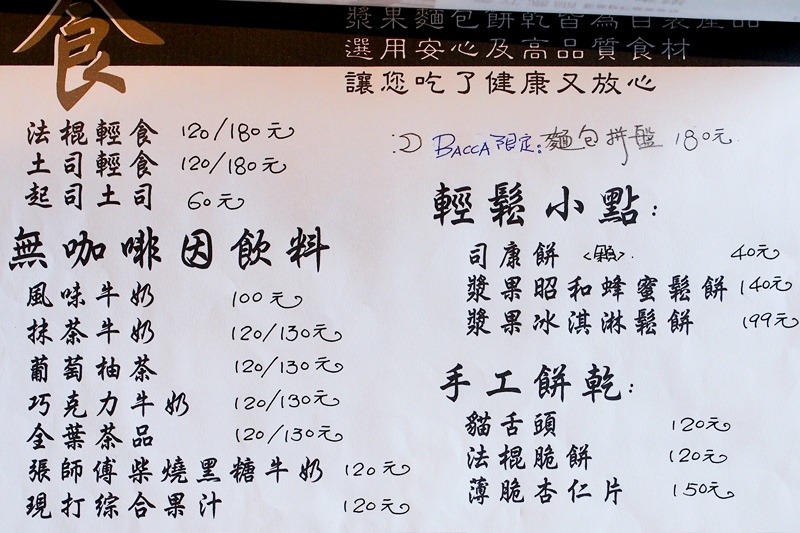 食
漿果麵包餅乾皆為自製產品
選用安心及高品質食材
讓您吃了健康又放心
法棍輕食 120/180元
土司輕食 120/180元
起司土司 60元
無咖啡因飲料
風味牛奶 100元
抹茶牛奶 120/130元
葡萄柚茶 120/130元
巧克力牛奶 120/130元
全葉茶品 120/130元
張師傅柴燒黑糖牛奶 120元
現打綜合果汁 120元
:) BACCA限定:麵包拼盤 180元
輕鬆小點:
司康餅 <顆>. 40元
漿果昭和蜂蜜鬆餅 140元
漿果冰淇淋鬆餅 199元
手工餅乾:
貓舌頭 120元
法棍脆餅 120元
薄脆杏仁片 150元